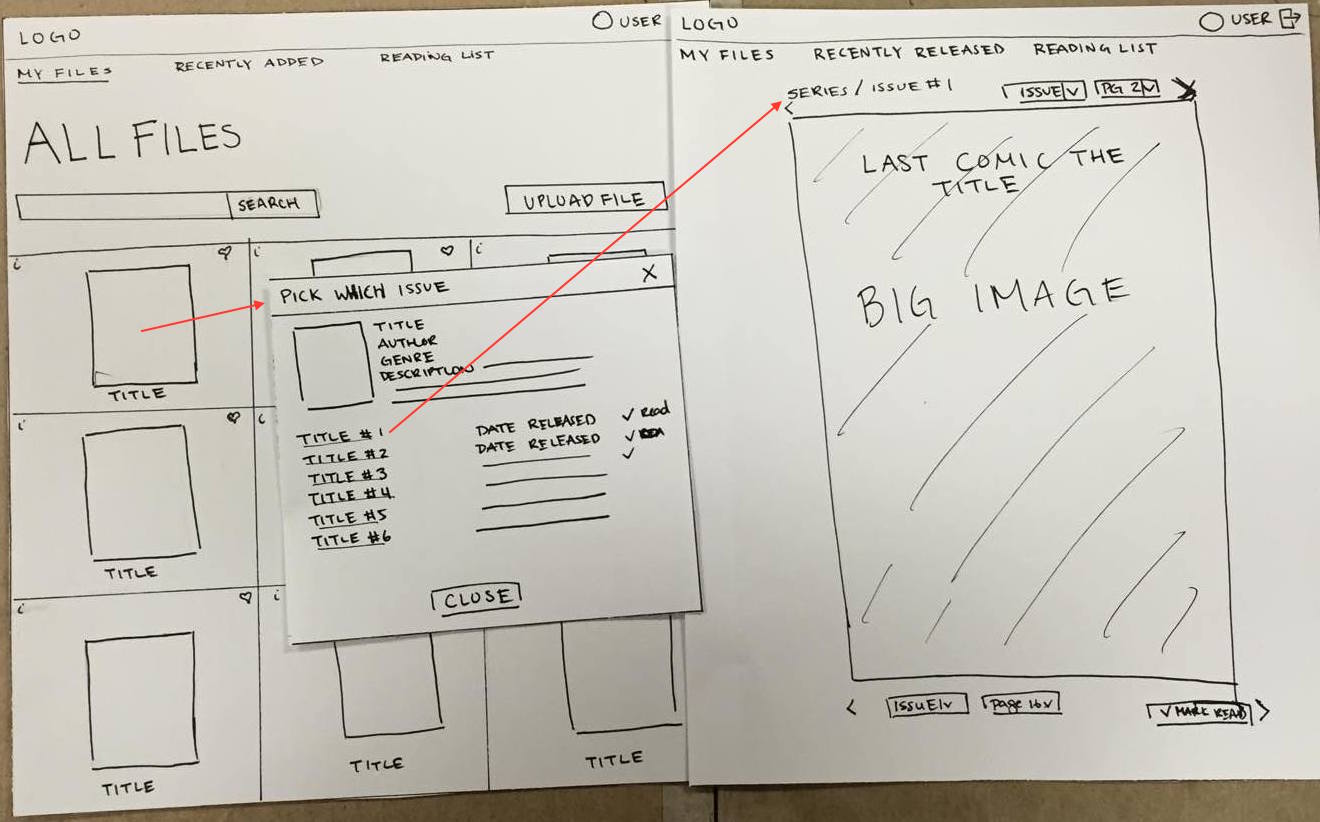 LOGO
USER
MY FILES
RECENTLY ADDED
READING LIST
ALL FILES
SEARCH
UPLOAD FILE
i
i
i
TITLE
i
i
TITLE
i
i
TITLE
TITLE
TITLE
PICK WHICH ISSUE
X
TITLE
AUTHOR
GENRE
DESCRIPTION
TITLE #1 DATE RELEASED ✓ Read
TITLE #2 DATE RELEASED ✓
TITLE #3 ✓
TITLE #4
TITLE #5
TITLE #6
CLOSE
LOGO
USER
MY FILES
RECENTLY RELEASED
READING LIST
SERIES / ISSUE #1
ISSUE v
PG 2 v
<
LAST COMIC THE
TITLE
BIG IMAGE
<
ISSUE v
Page 16 v
✓ MARK READ
>